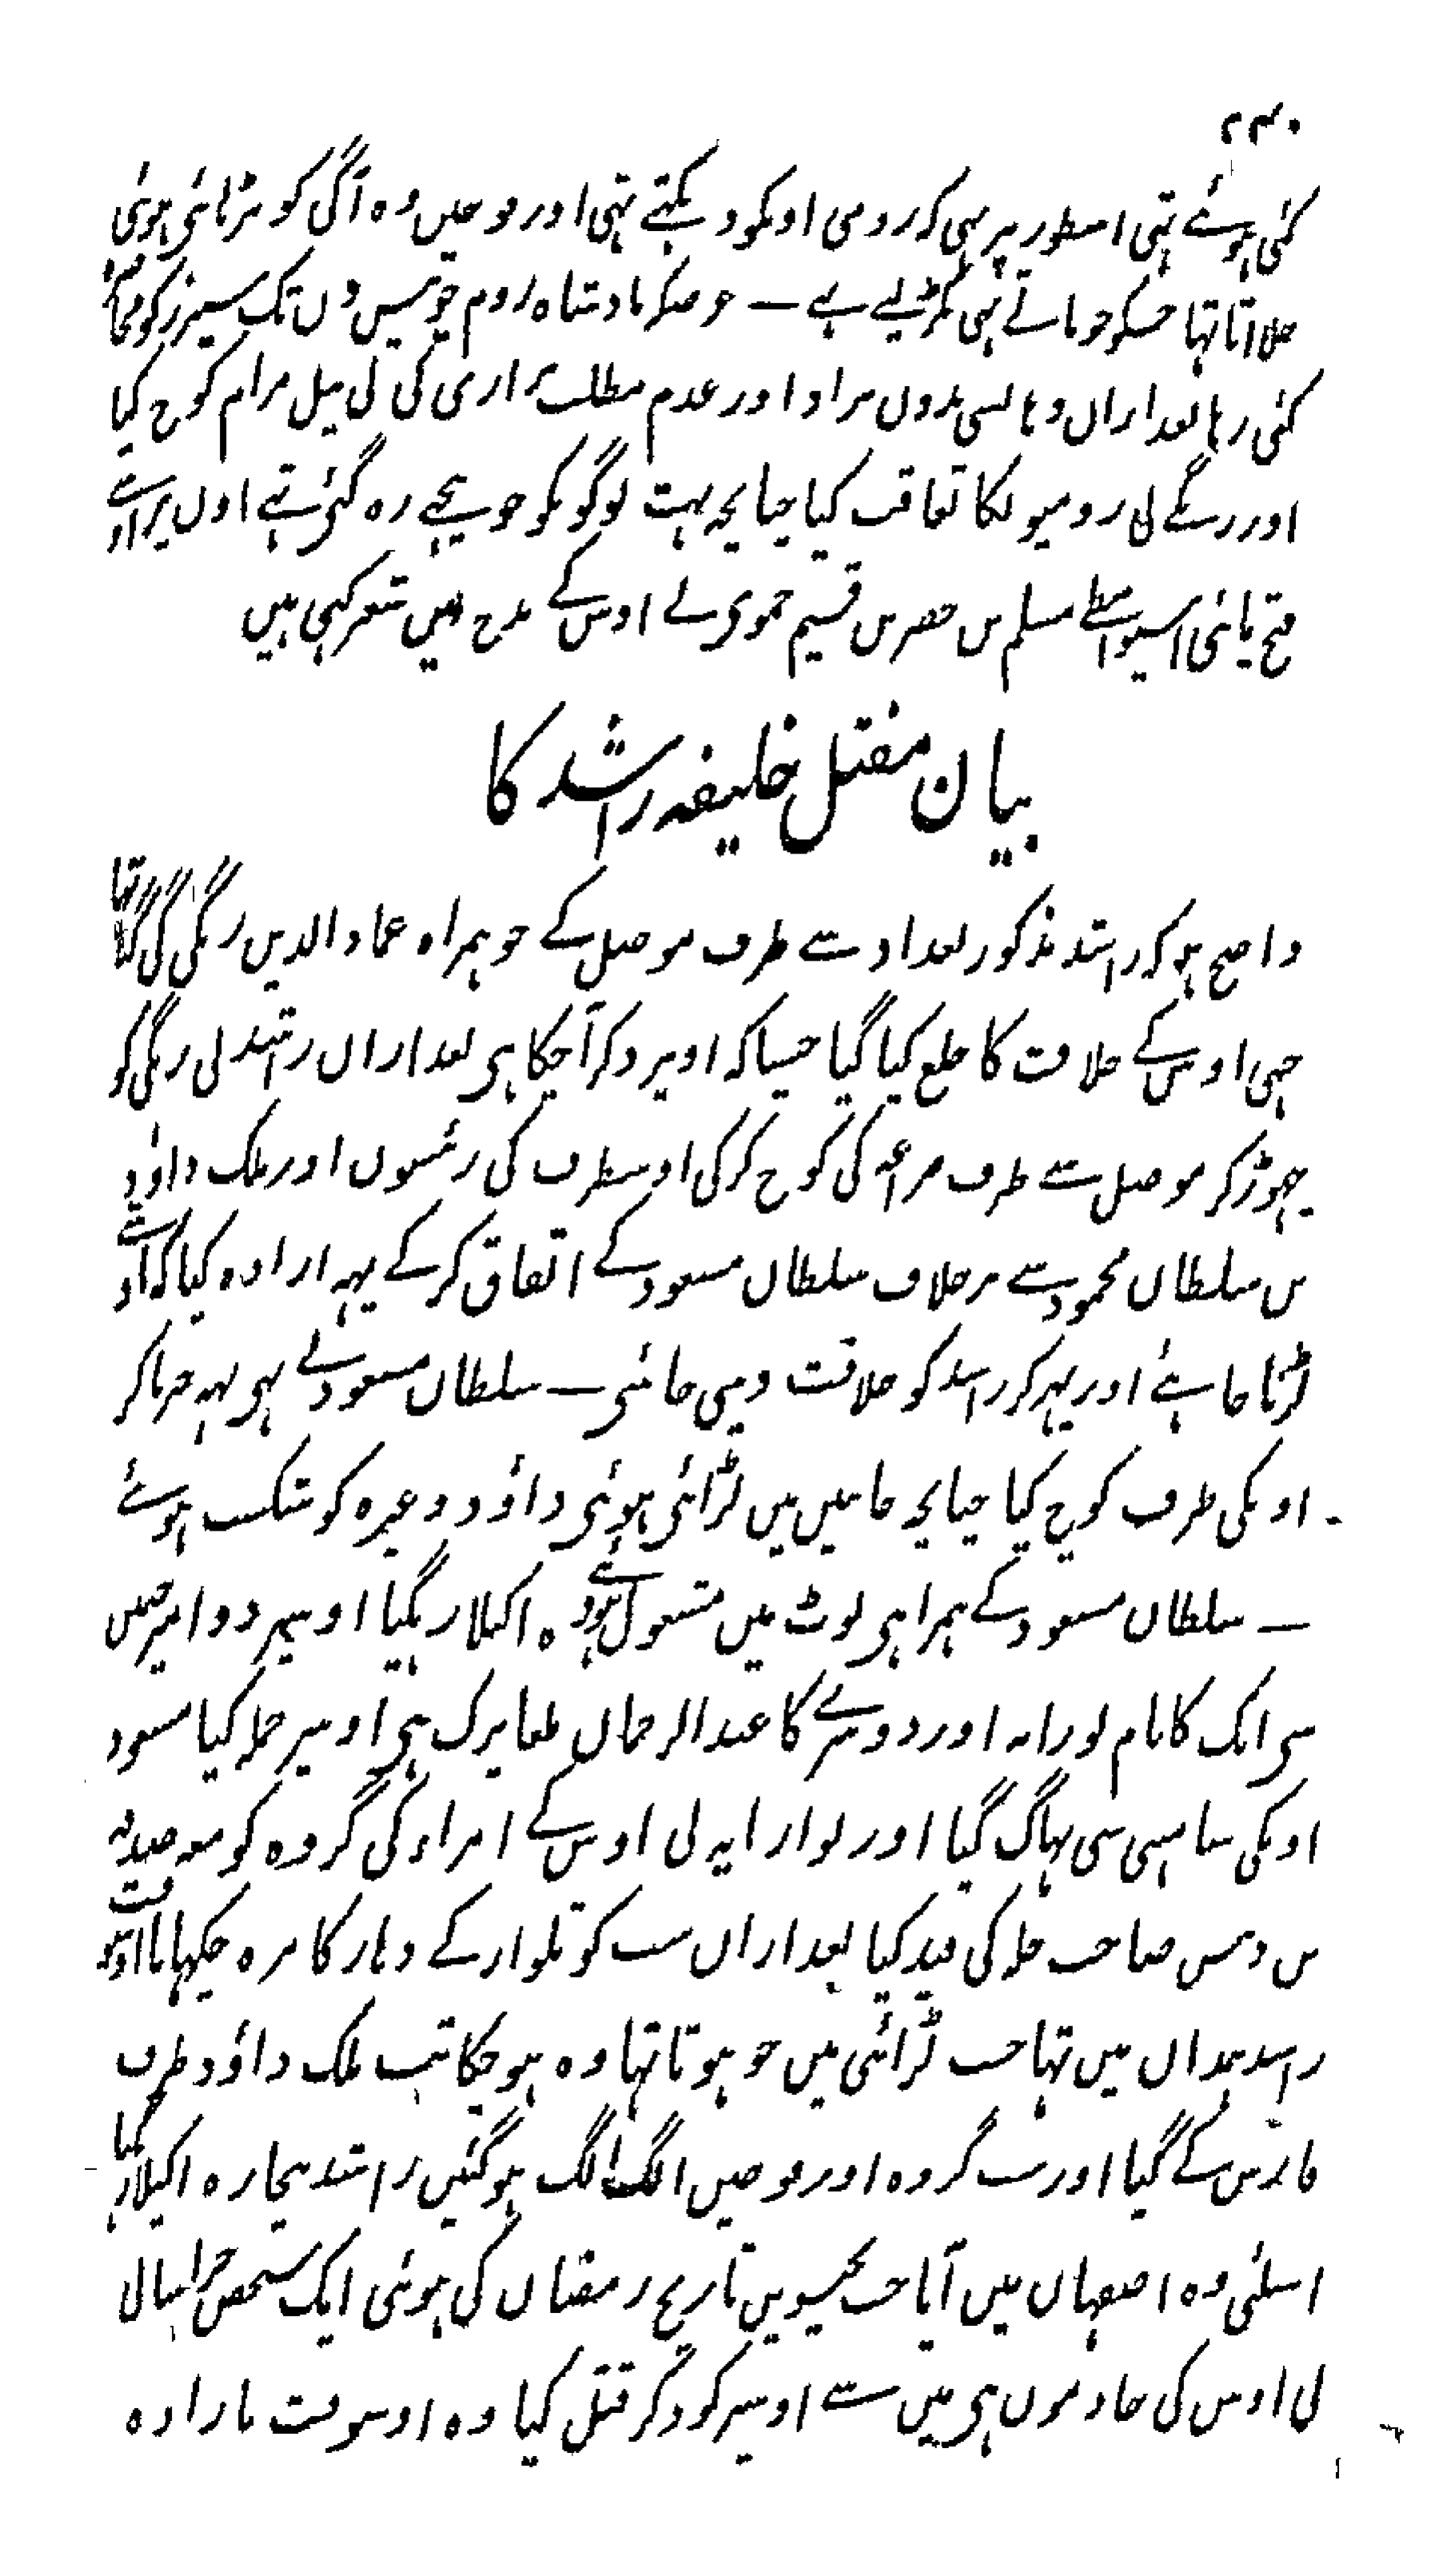 ۲۳۰
کئی ہوئے تہی اسطور پر ہی کہ رومی اونکو دیکہتے تہی اور فوجیں وہ آگ کو بڑہائی ہوئی
جلاتا تہا جسکو جو پاتے تہی پکڑ لیے ہے — غرضکہ بادشاہ روم چوبیس دن تک سیزر کو محاصرہ
کئی رہا بعد ازاں وہانسی بدون مراد اور عدم مطلب براری کی نی نیل مرام کوچ کیا
اور زنگے نی رومیونکا تعاقب کیا چنانچہ بہت لوگونکو جو پیچہے رہ گئی تہے
فتح پائی اسیواسطے مسلم بن خضر بن قسیم حموی نے اوس کے مدح میں شعر کہی ہیں
بیان مقتل خلیفہ راشد کا
واضح ہو کہ راشد مذکور بغداد سے طرف موصل کے جو ہمراہ عماد الدین زنگی کی گیا تہا
جبہی اوس کے خلافت کا خلع کیا گیا جیسا کہ اوپر ذکر آچکا ہی بعد ازاں راشد نی زنگی کو
چہوڑ کر موصل سے طرف مراغہ کی کوچ کر کی اوسطرف کی رئیسوں اور ملک داؤد
بن سلطان محمود سے برخلاف سلطان مسعود کے اتفاق کر کے یہہ ارادہ کیا کہ اوسے
لڑنا چاہئے اور یہہ کہ راشد کو خلافت دیی جائی — سلطان مسعود نے بہی یہہ خبر پاکر
اونکی طرف کوچ کیا چنانچہ جانبین میں لڑائی ہوئی داؤد وغیرہ کو شکست ہوئے
— سلطان مسعود کے ہمراہی لوٹ میں مشغول ہوئے وہ اکیلا رہگیا اوسپر دو امیر جس
سی ایک کا نام بوزابہ اور دوسرے کا عبد الرحمان طغایرک ہی اوسپر حملہ کیا مسعود
اونکی سامہنی سی بہاگ گیا اور بوازابہ نی اوس کے امراء کی گروہ کو معہ صدقہ
بن دبیس صاحب حلہ کی قید کیا بعد ازاں سب کو تلوار کے دہار کا مزہ چکہایا اوسوقت
راشد ہمدان میں تہا جب لڑائی میں جو ہوتا تہا وہ ہو چکا تب ملک داؤد طرف
فارس کے گیا اور سب گروہ اور فوجیں الگ الگ ہوگئیں راشد بیچارہ اکیلا رہگیا
اسلئی وہ اصفہان میں آیا جب پچیسویں تاریخ رمضان کی ہوئی ایک شخص خراسانی
نی اوس کی خادموں ہی میں سے اوسپر کود کر قتل کیا وہ اوسوقت ارادہ